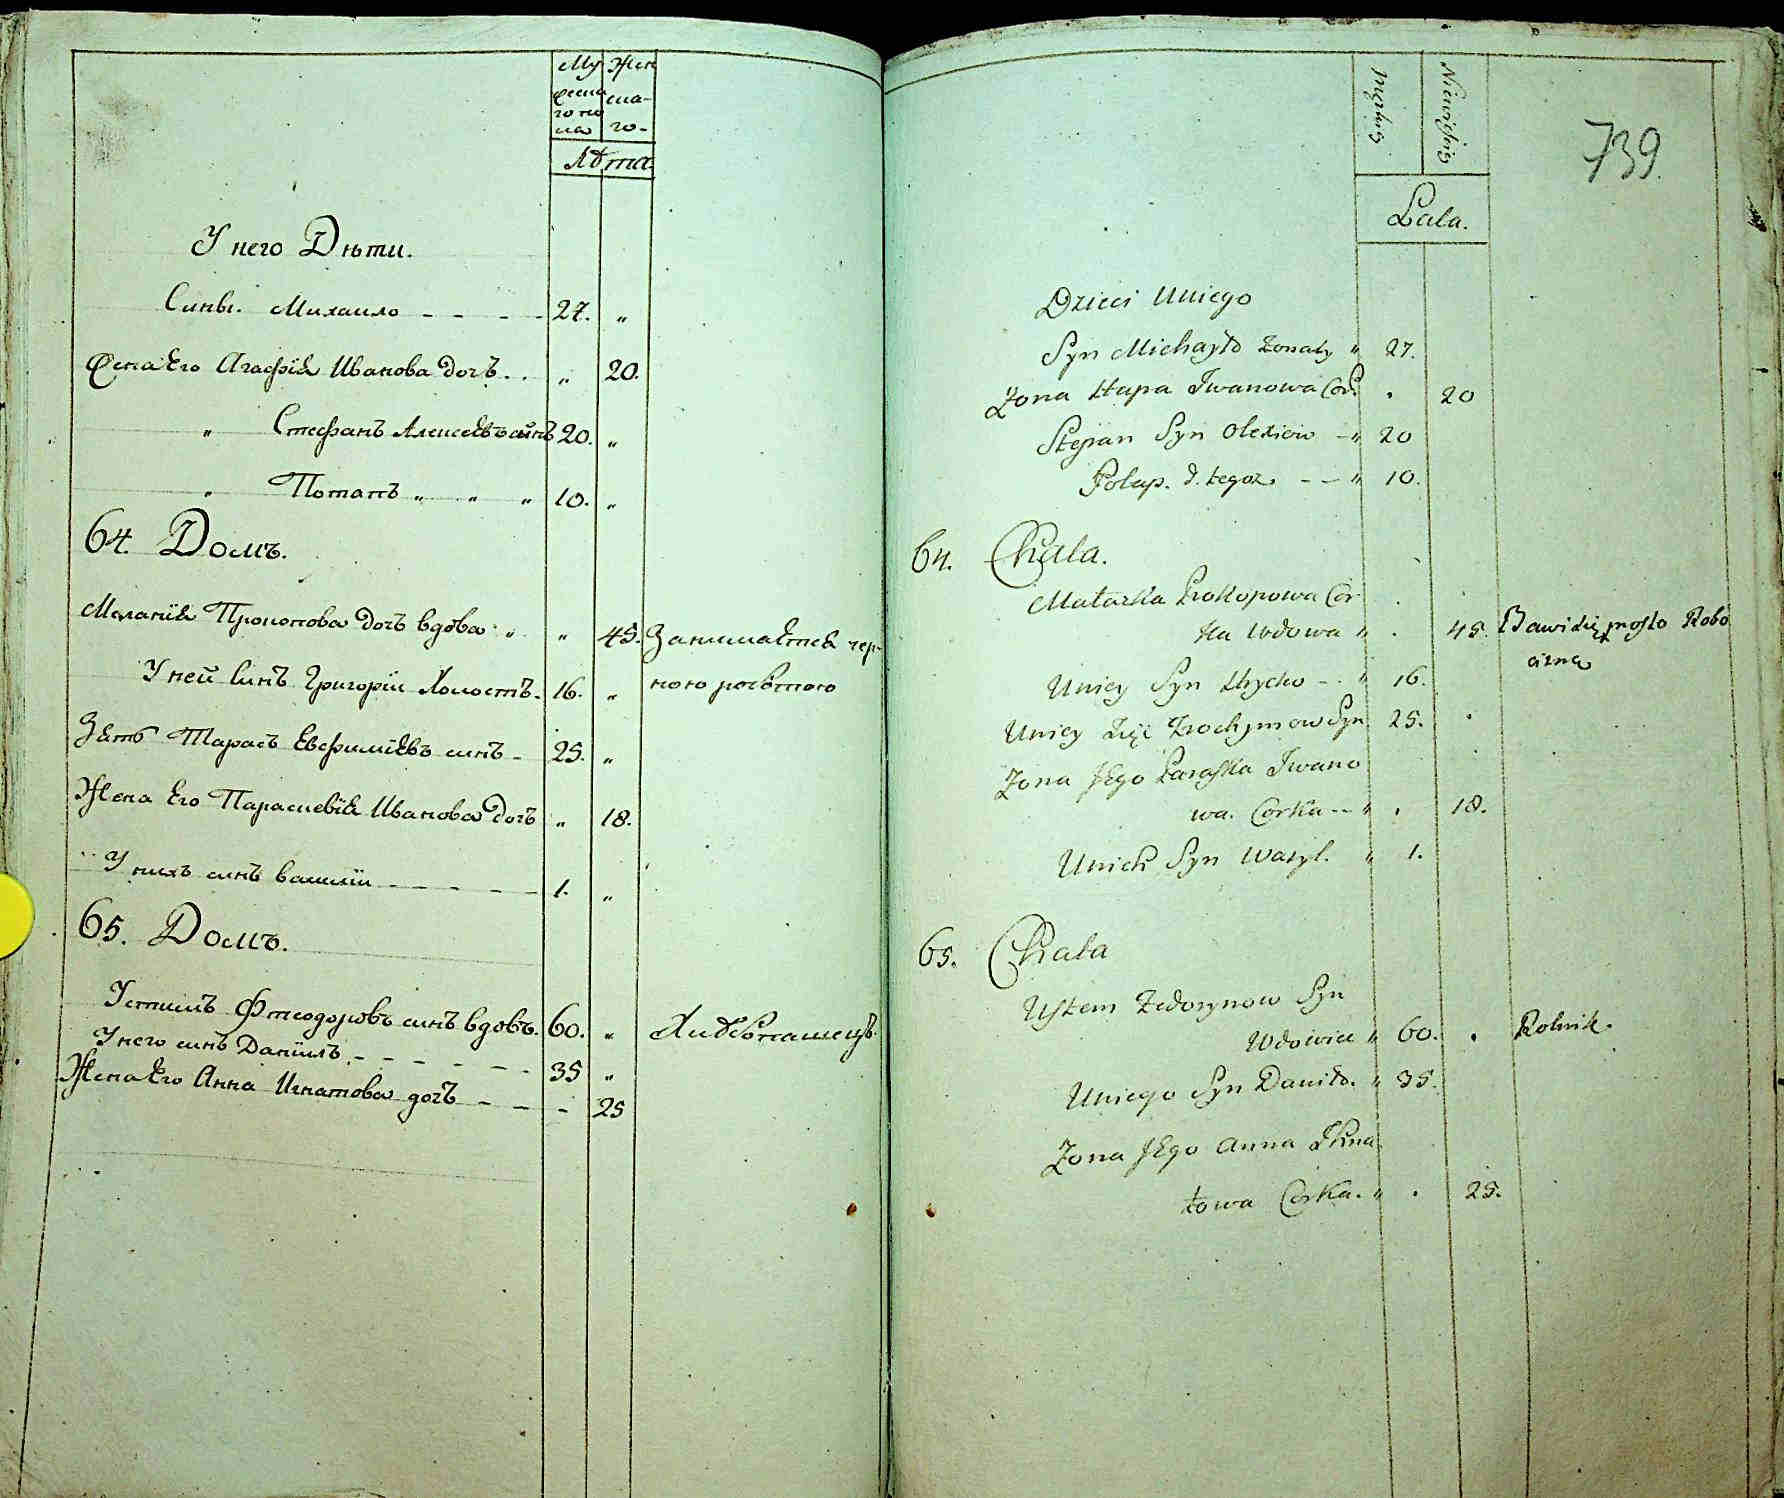 Му
Жен
жеска
ска-
го по
ла
го-
Лѣта.
У него Дѣти.
Сынъ. Михаило - - - - 27. „
Жена Его Агафія Иванова дочъ. . . „ 20.
„ Стефанъ Алексѣевъ сынъ 20. „
„ Потапъ „ „ „ 10. „
64. Домъ.
Меланія Прокопова дочъ вдова „ „ 45. Занимается чер-
У ней Сынъ Григорій Холостъ. 16. „ ною роботою
Зять Тарасъ Евфиміевъ сынъ - 25. „
Жена Его Параскевія Иванова Дочъ „ 18.
У нихъ сынъ василій - - - - - 1. „
65. Домъ.
Устимъ Фтеодоровъ сынъ вдовъ. 60. „ Хлѣбопашецъ.
У него сынъ Даніилъ. - - - - - 35 „
Жена Его Анна Игнатова дочъ - - - - 25
Męskiey
Niewieskiey
739.
Lata.
Dzieci Uniego
Syn Michayło żonaty „ 27.
Żona Hapa Iwanowa Cor. . 20
Stefan Syn Olexiow - „ 20
Potap. d. tegoż. - - „ 10.
64. Chata.
Małaszka Prokopowa Cor
ka Wdowa „ . 45. Bawi się prosto Robo
cizną
Uniey Syn Hryćko - . „ 16.
Uniey Zięć Trochymow Syn 25.
Żona JEgo Paraska Iwano
wa. Corka - - „ . 18.
Unich Syn Wasyl. „ 1.
65. Chata
Ustem Fedorynow Syn
Wdowiec „ 60. . Rolnik.
Uniego Syn Daniło. „ 35.
Żona JEgo Anna Ihna
towa Corka. „ . 25.